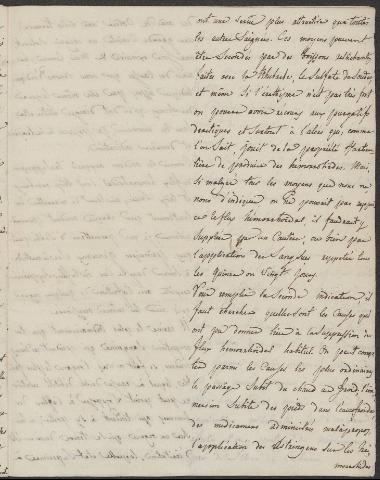 ont une vertu plus attractive que toutes
les autres Saignées. Ces moyens peuvent
être Secondés par des boissons relachantes
faites avec la Rhubarbe, le Sulfate de Soude,
et même Si l'éréthysme n'est pas très fort
on pourra avoir recours aux purgatifs
drastiques et Surtout à l'aloës qui, comme
l'on Sait, jouit de la propriété particu-
lière de produire des hémorrhoïdes. Mais,
Si malgré tous les moyens que nous ve-
nons d'indiquer on ne pouvait pas rappeler
ce flux hémorrhoïdal, il faudrait y
Suppléer par un Cautère, ou bien par
l'application des Sangsues répétée tous
les quinze ou Vingt jours.
Pour remplir la Seconde indication, il
faut chercher quelles sont les Causes qui
ont pu donner lieu à la Suppression du
flux hémorrhoïdal habituel. On peut comp-
ter parmi les Causes les plus ordinaires
le passage Subit du chaud au froid, l'im-
mersion Subite des pieds dans l'eau froide,
des médicamens administrés mal à propos,
l'application des astringens sur les hé-
morrhoïdes